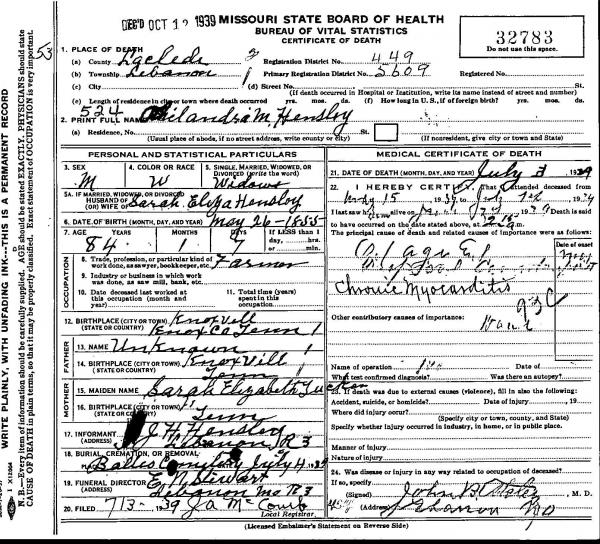 REC'D OCT 12 1939
MISSOURI STATE BOARD OF HEALTH
BUREAU OF VITAL STATISTICS
CERTIFICATE OF DEATH
32783
Do not use this space.
1. PLACE OF DEATH
(a) County Laclede Registration District No. 449
(b) Township Lebanon Primary Registration District No. 5609 Registered No.
(c) City (d) Street No.
(If death occurred in Hospital or Institution, write its name instead of street and number)
(e) Length of residence in city or town where death occurred yrs. mos. ds. (f) How long in U. S., if of foreign birth? yrs. mos. ds.
524
2. PRINT FULL NAME Philandra M. Hensley
(a) Residence, No. St.
(Usual place of abode, if no street address, write county or city) (If nonresident, give city or town and State)
PERSONAL AND STATISTICAL PARTICULARS
3. SEX M
4. COLOR OR RACE W
5. SINGLE, MARRIED, WIDOWED, OR DIVORCED (write the word) Widows
5A. IF MARRIED, WIDOWED, OR DIVORCED
HUSBAND OF (OR) WIFE OF Sarah Eliza Hensley
6. DATE OF BIRTH (MONTH, DAY, AND YEAR) May 26 - 1855
7. AGE YEARS MONTHS DAYS If LESS than 1 day, hrs. or min.
84 1 7
OCCUPATION
8. Trade, profession, or particular kind of work done, as sawyer, bookkeeper, etc. Farmer
9. Industry or business in which work was done, as saw mill, bank, etc.
10. Date deceased last worked at this occupation (month and year)
11. Total time (years) spent in this occupation
12. BIRTHPLACE (CITY OR TOWN) Knoxvill
(STATE OR COUNTRY) Knox Co Tenn
FATHER
13. NAME Unknown
14. BIRTHPLACE (CITY OR TOWN) Knoxvill
(STATE OR COUNTRY) Tenn
MOTHER
15. MAIDEN NAME Sarah Elizabeth Tucker
16. BIRTHPLACE (CITY OR TOWN)
(STATE OR COUNTRY) Tenn
17. INFORMANT J H Hensley
(ADDRESS) Lebanon R 3
18. BURIAL, CREMATION, OR REMOVAL
July 4 1939
19. FUNERAL DIRECTOR Stewart
(ADDRESS) Lebanon Mo R 3
20. FILED 7 13 - 39 J A McComb
Local Registrar.
MEDICAL CERTIFICATE OF DEATH
21. DATE OF DEATH (MONTH, DAY, AND YEAR) July 3 1939
22. I HEREBY CERTIFY, That I attended deceased from
May 15 1939
I last saw alive on 1939 Death is said
to have occurred on the date stated above, at m.
The principal cause of death and related causes of importance were as follows:
Date of onset
Chronic Myocarditis
93C
Other contributory causes of importance:
Name of operation Date of
What test confirmed diagnosis? Was there an autopsy?
23. If death was due to external causes (violence), fill in also the following:
Accident, suicide, or homicide? Date of injury , 19
Where did injury occur?
(Specify city or town, county, and State)
Specify whether injury occurred in industry, in home, or in public place.
Manner of injury
Nature of injury
24. Was disease or injury in any way related to occupation of deceased?
If so, specify
(Signed) , M. D.
(Address) Lebanon Mo
(Licensed Embalmer's Statement on Reverse Side)
WRITE PLAINLY, WITH UNFADING INK---THIS IS A PERMANENT RECORD
N. B.—Every item of information should be carefully supplied. AGE should be stated EXACTLY. PHYSICIANS should state
CAUSE OF DEATH in plain terms, so that it may be properly classified. Exact statement of OCCUPATION is very important.